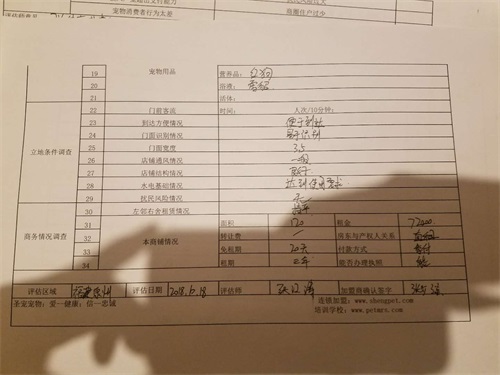 宠物消费者行为太差 商圈住户过少
19 宠物用品 营养品：红狗
20 浴液：雪貂
21 活体：
立地条件调查 22 门前客流 时间： 人次/10分钟：
23 到达方便情况 便于到达
24 门面识别情况 易于识别
25 门面宽度 3.5
26 店铺通风情况 一般
27 店铺结构情况 良好
28 水电基础情况 达到使用要求
29 扰民风险情况 无
商务情况调查 30 左邻右舍租赁情况
31 本商铺情况 面积 120 租金 72000
32 转让费 / 房东与产权人关系
33 免租期 20天 付款方式
34 租期 三年 能否办理执照 能
评估区域 评估日期 2018.6.18 评估师 加盟商确认签字
圣宠宠物：爱一健康；信一忠诚 连锁加盟：www.shengpet.com
培训学校：www.petmrs.com